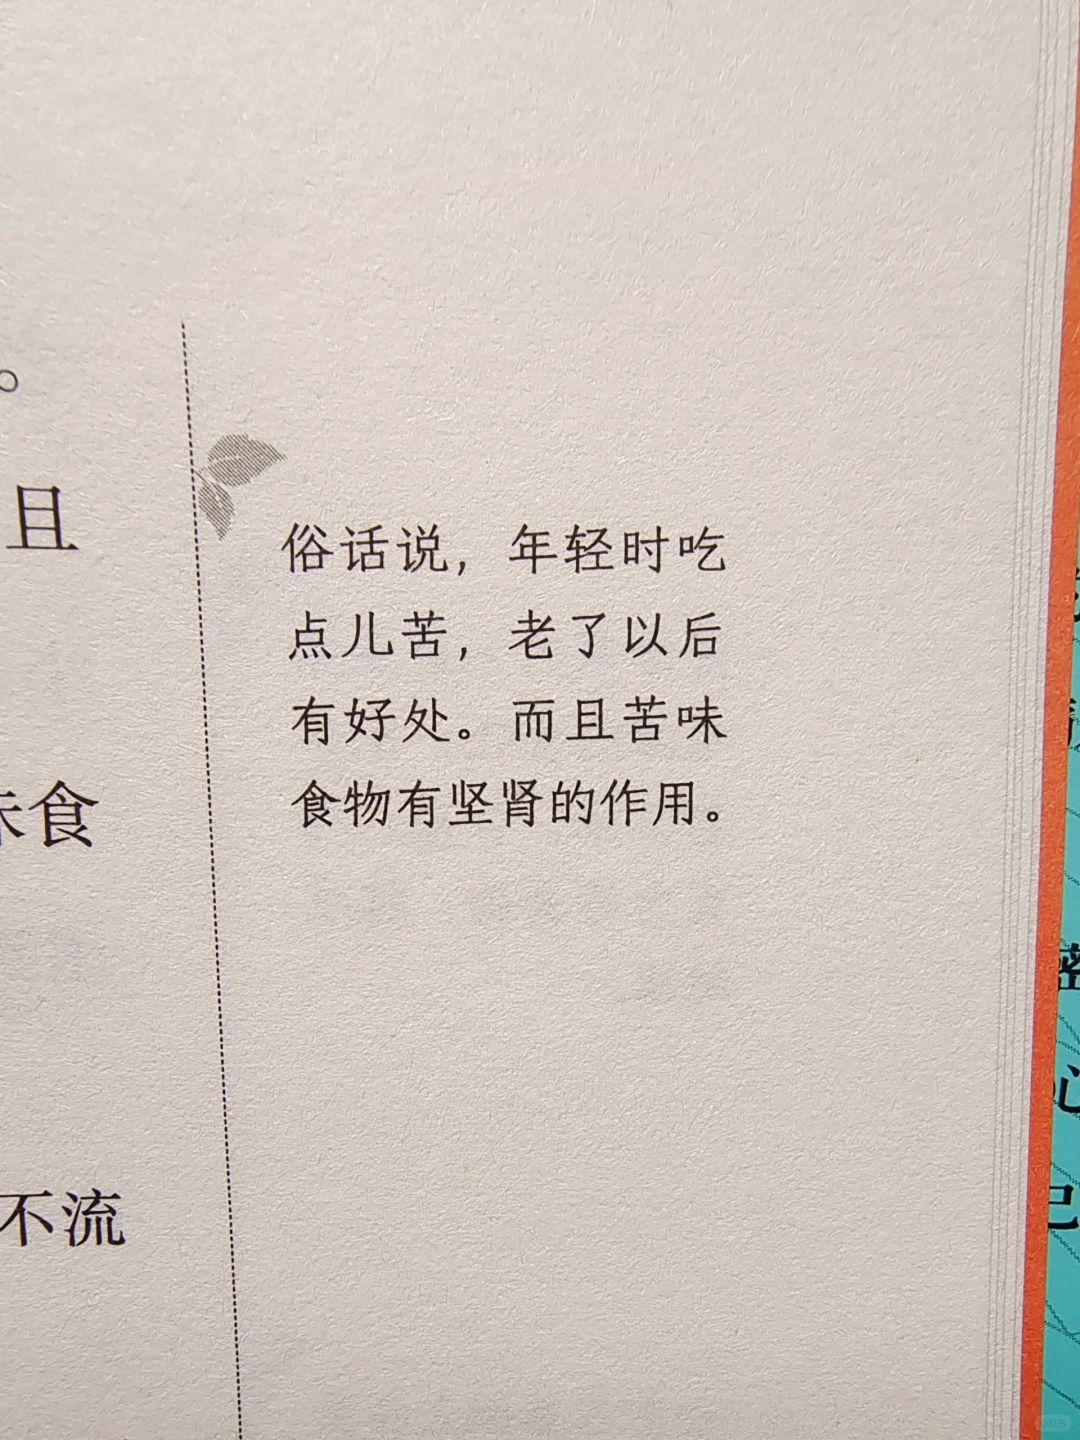 。
且
食
不流
俗话说，年轻时吃
点儿苦，老了以后
有好处。而且苦味
食物有坚肾的作用。
密
心
小红书